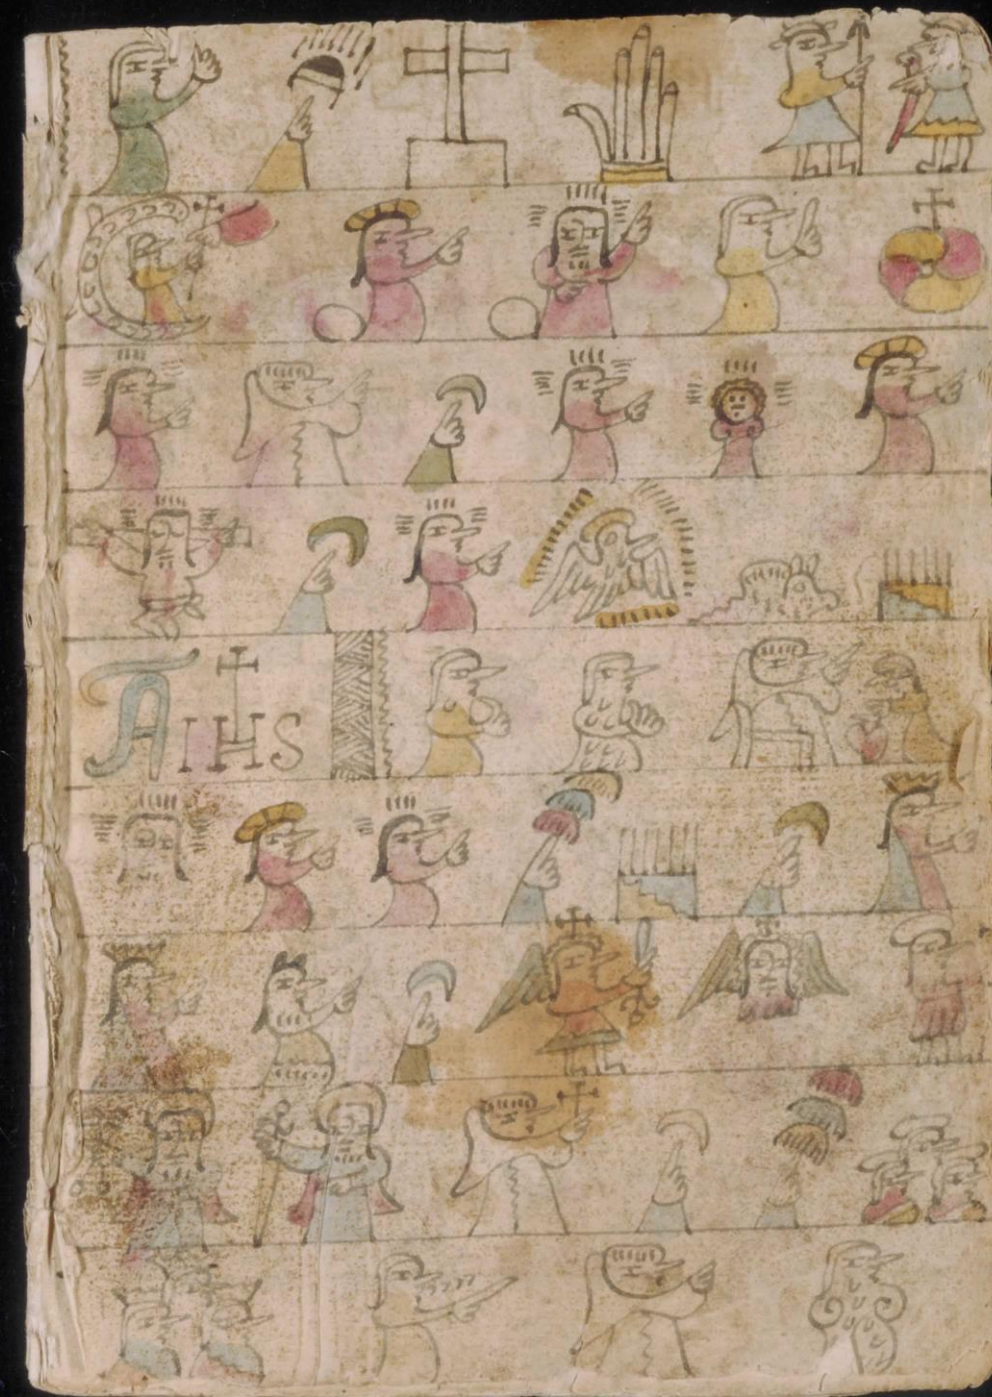 A IHS